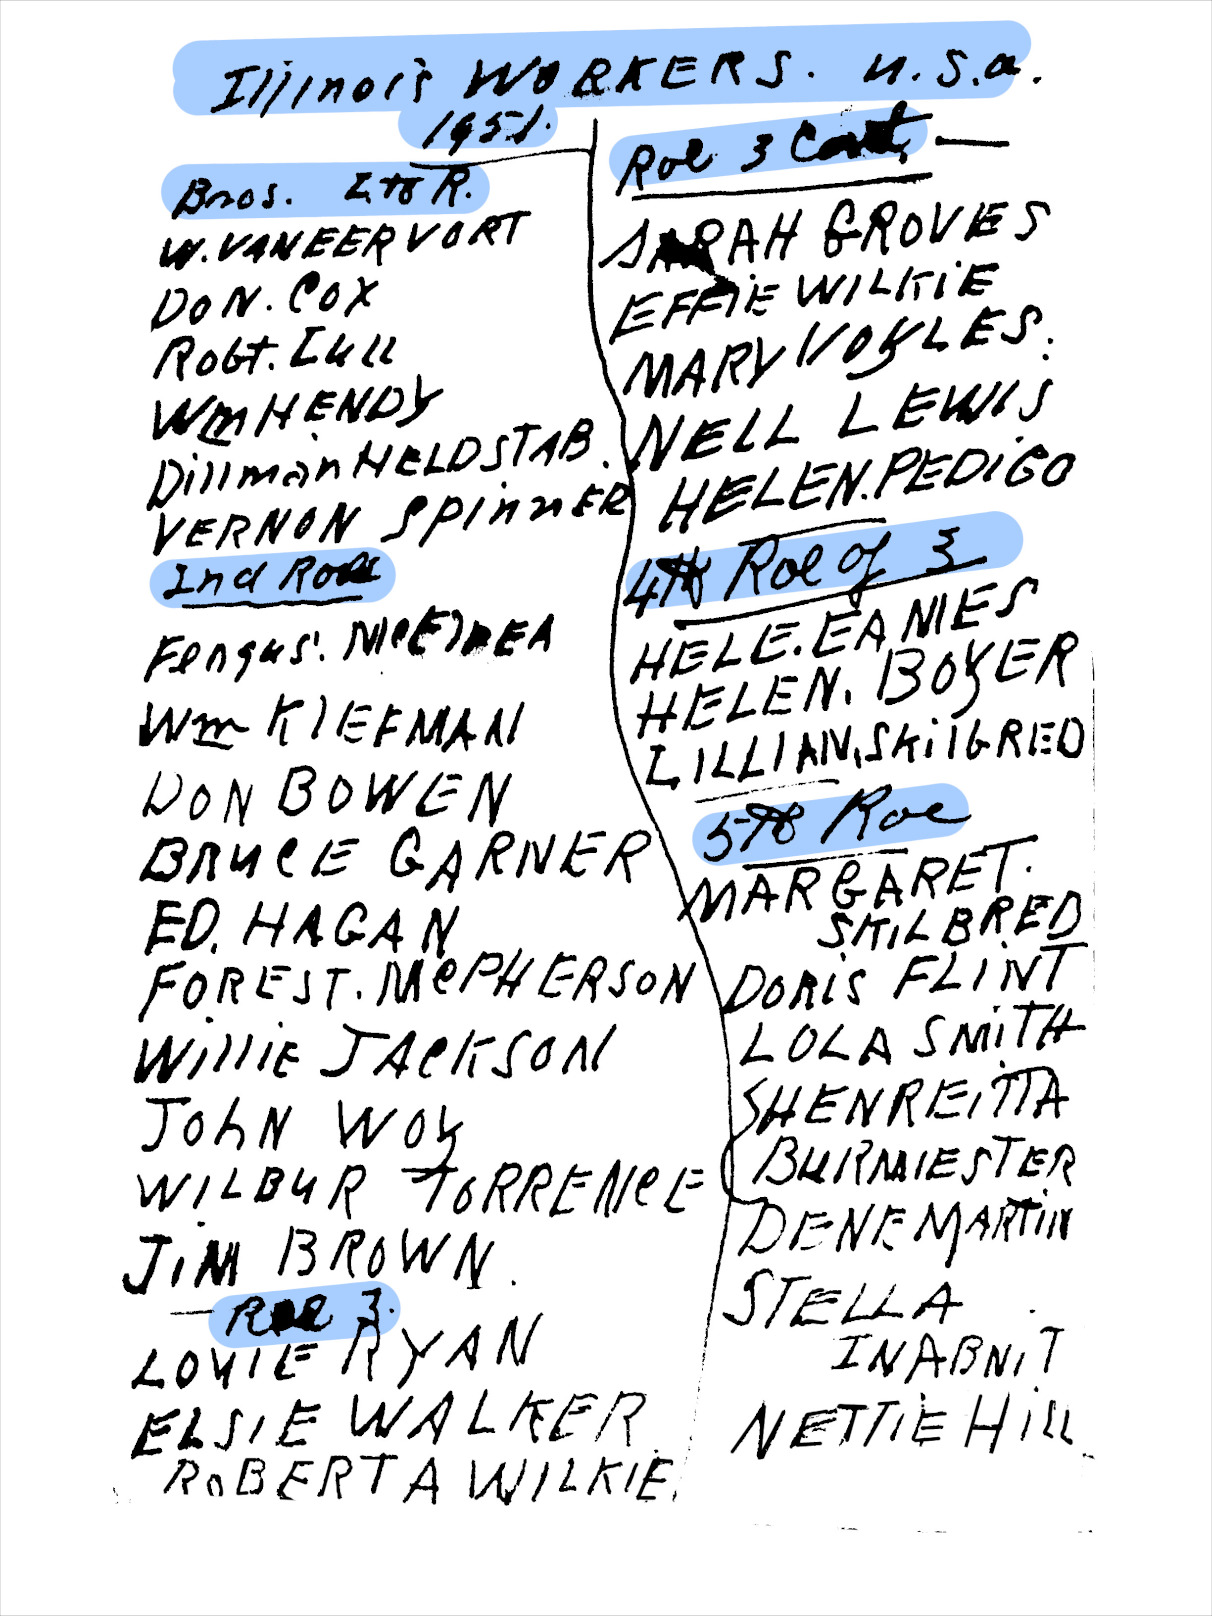 Illinois WORKERS. U.S.A.
1951.
Bros. L to R.
W. VANEERVORT
DON. COX
Robt. Lull
Wm HENDY
Dillman HELDSTAB.
VERNON Spinner
2nd Roe
Fergus.
Wm KlEFMAN
DON BOWEN
BRUCE GARNER
ED. HAGAN
FOREST. McPHERSON
WillIE JACKSON
JOHN WOY
WILBUR TORRENCE
JiM BROWN.
Roe 3.
LOUIE RYAN
ELSIE WALKER
ROBERTA WILKIE.
Roe 3 Cont,
SARAH GROVES
EFFIE WILKIE
MARY VOYLES.
NELL LEWIS
HELEN. PEDIGO
4th Roe of 3
HELE. EAMES
HELEN. BOYER
LILLIAN. SKilGRED
5th Roe
MARGARET.
SKILBRED
DORIS FLINT
LOLA SMITH
SHENREITTA
BURMIESTER
DENE MARTIN
STELLA
INABNIT
NETTIE HILL